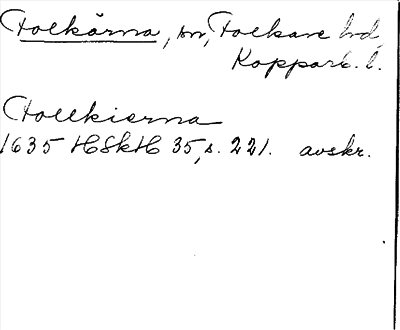 Folkärna, sn, Folkare hd,
Kopparb. l.
Follkierna
1635 HSkH 35, s. 221. avskr.